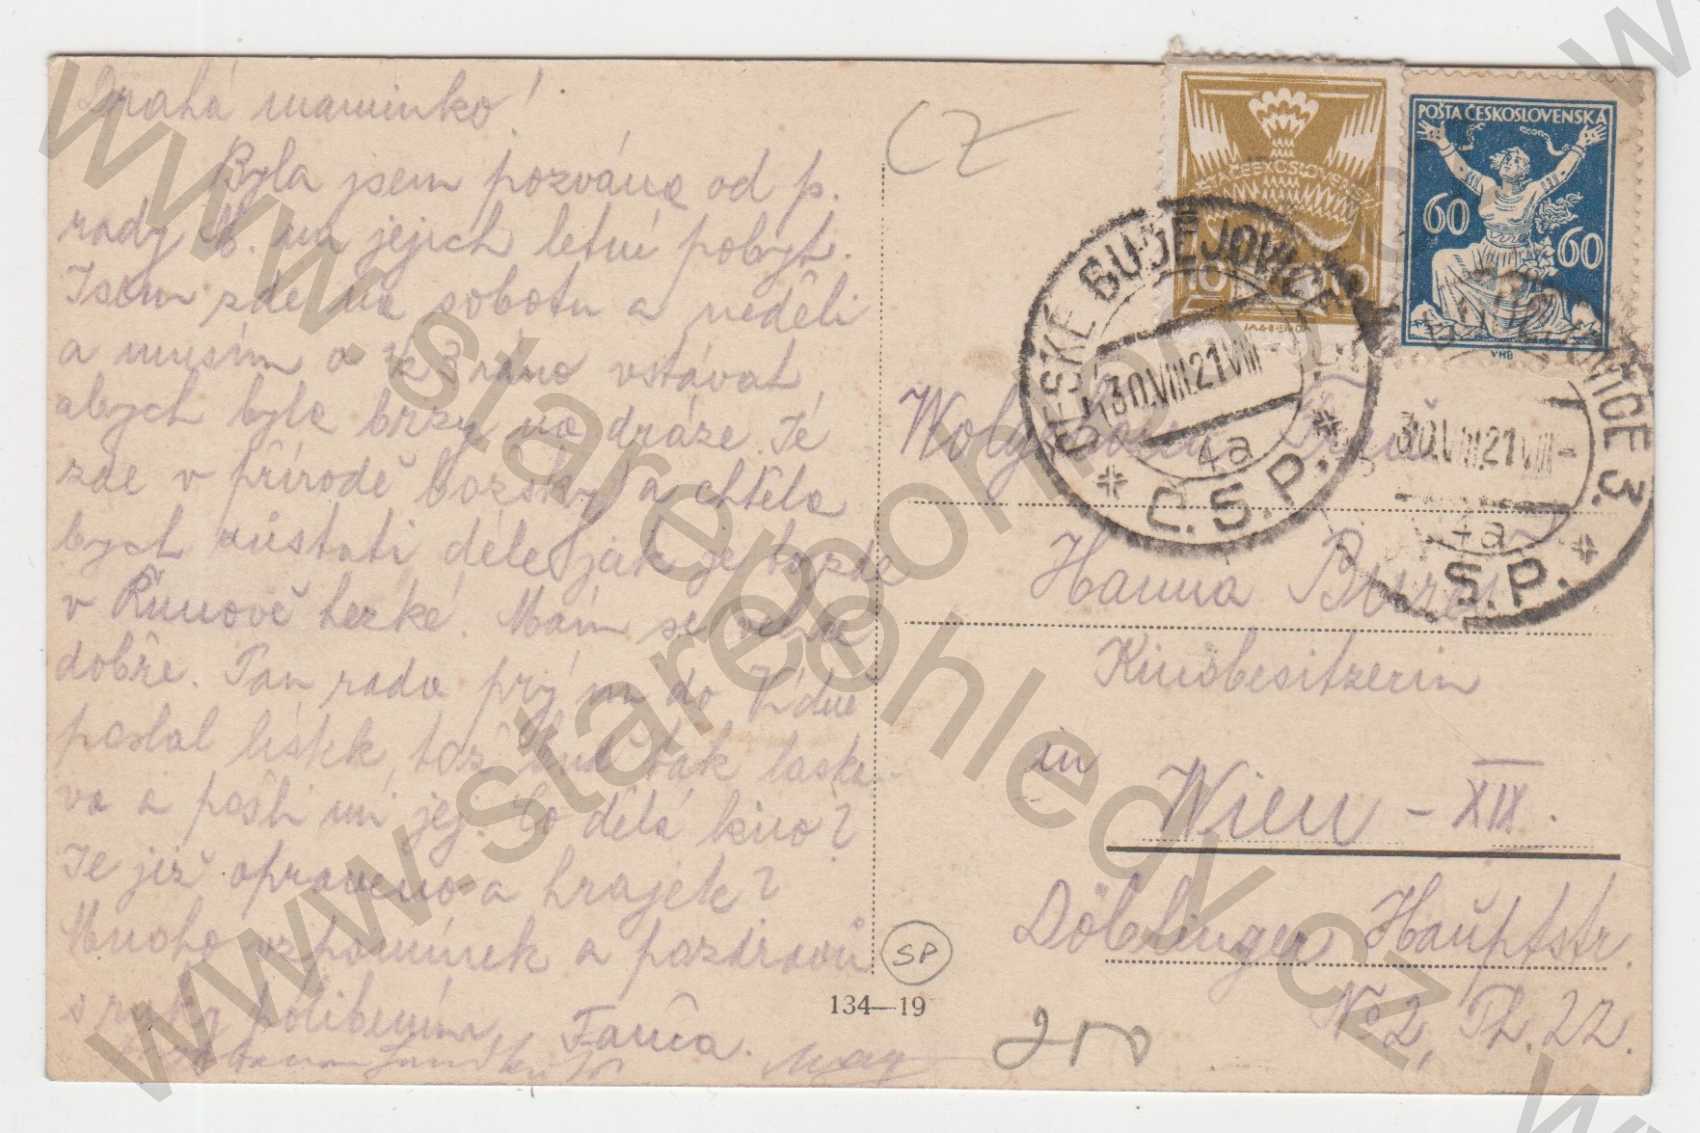 Drahá maminko!
Byla jsem pozvána od p.
rady M. na jejich letní pobyt.
Jsem zde na sobotu a neděli
a musím o ½3 ráno vstávat,
abych byla brzy na dráze. Jé
zde v přírodě božsky a chtěla
bych zůstati déle, jak je to zde
v Římově hezké. Mám se velice
dobře. Pan rada prý m do Vídně
poslal lístek, tož buď tak laska
va a pošli mi jej. Co dělá kino?
Je již opraveno a hrajek?
Mnoho vzpomínek a pozdravů
s ruky políbením Fanča.
CZ
POŠTA ČESKOSLOVENSKÁ
60 60
VHB
10
ČESKÉ BUDĚJOVICE
30.VIII.21 VIII
4a
Č.S.P.
BUDĚJOVICE 3.
30.VIII.21 VIII
4a
S.P.
Hanna
Kinobesitzerin
in
Wien - XIX.
Döblinger Hauptstr.
No 2, Th. 22.
SP
134—19
250
www.starepohledy.cz
www.starepohledy.cz